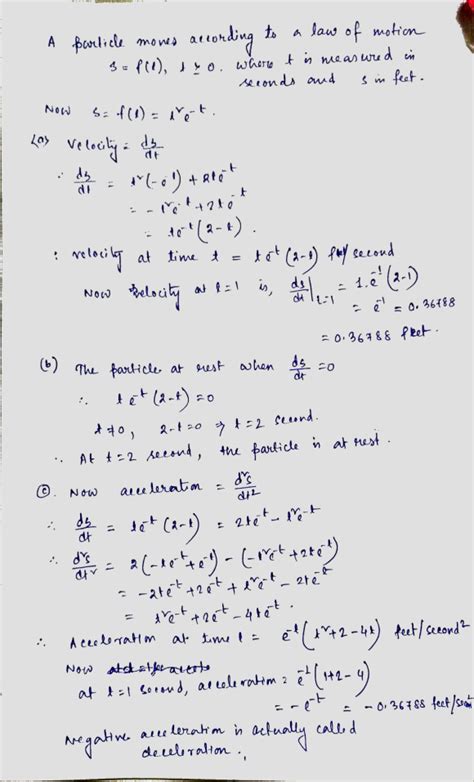 A particle moves according to a law of motion
s = f(t), t ≥ 0. where t is measured in
seconds and s in feet.
Now s = f(t) = t²e^-t.
(a) Velocity = ds/dt
∴ ds/dt = t²(-e^-t) + 2te^-t
= -t²e^-t + 2te^-t
= te^-t (2-t).
∴ velocity at time t = te^-t (2-t) /second
Now velocity at t=1 is, ds/dt|t=1 = 1.e^-1 (2-1)
= e^-1 = 0.36788
= 0.36788 feet.
(b) The particle at rest when ds/dt = 0
∴ te^-t (2-t) = 0
t ≠ 0, 2-t=0 ⇒ t=2 second.
∴ At t=2 second, the particle is at rest.
(c). Now acceleration = d²s/dt2
∴ ds/dt = te^-t (2-t) = 2te^-t - t²e^-t
∴ d²s/dt² = 2(-te^-t + e^-t) - (-t²e^-t + 2te^-t)
= -2te^-t + 2e^-t + t²e^-t - 2te^-t
= t²e^-t + 2e^-t - 4te^-t.
∴ Acceleration at time t = e^-t (t²+2-4t) feet/second²
Now
at t=1 second, acceleration = e^-1 (1+2-4)
= -e^-t = -0.36788 feet/
Negative acceleration is actually called
deceleration.